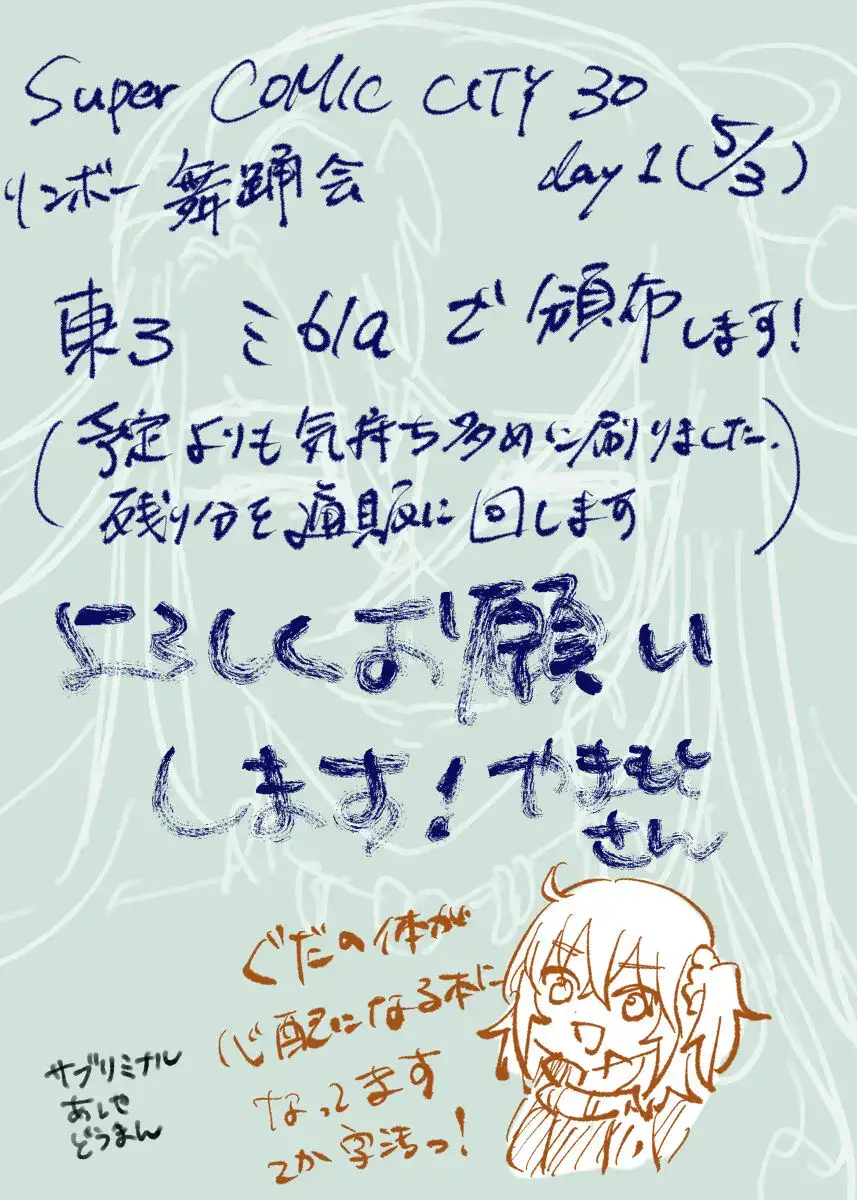 Super COMIC CITY 30
リンボー舞踊会 day1(5/3)
東3 ミ61a で頒布します!
(予定よりも気持ち多めに刷りました.
残り分を通販に回します)
よろしくお願い
します!やまもと
さん
ぐだの体が
心配になる本に
なってます
てか字汚っ!
サブリミナル
あしや
どうまん